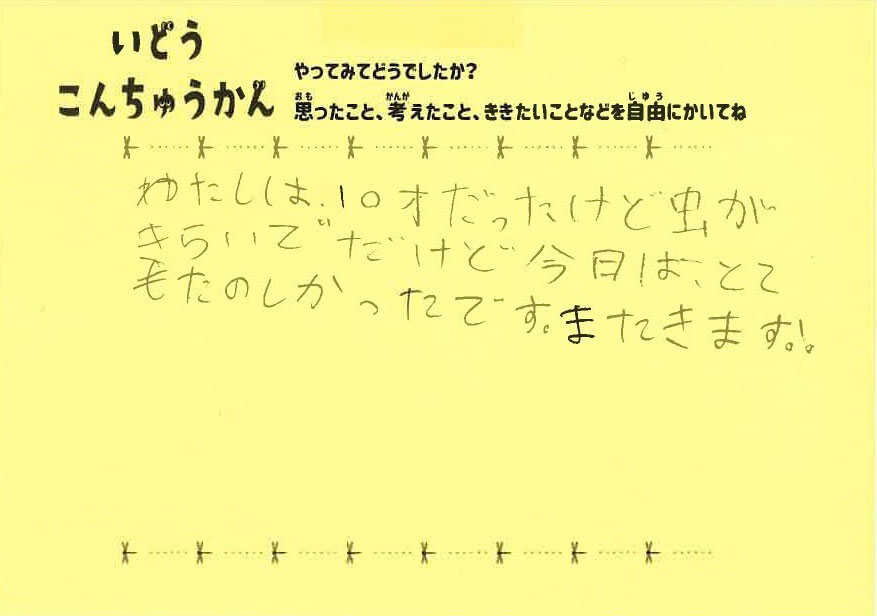 いどう
こんちゅうかん
やってみてどうでしたか?
思ったこと、考えたこと、ききたいことなどを自由にかいてね
わたしは、10才だったけど虫が
きらいで゛だけど今日は、とて
もたのしかったです。またきます!。